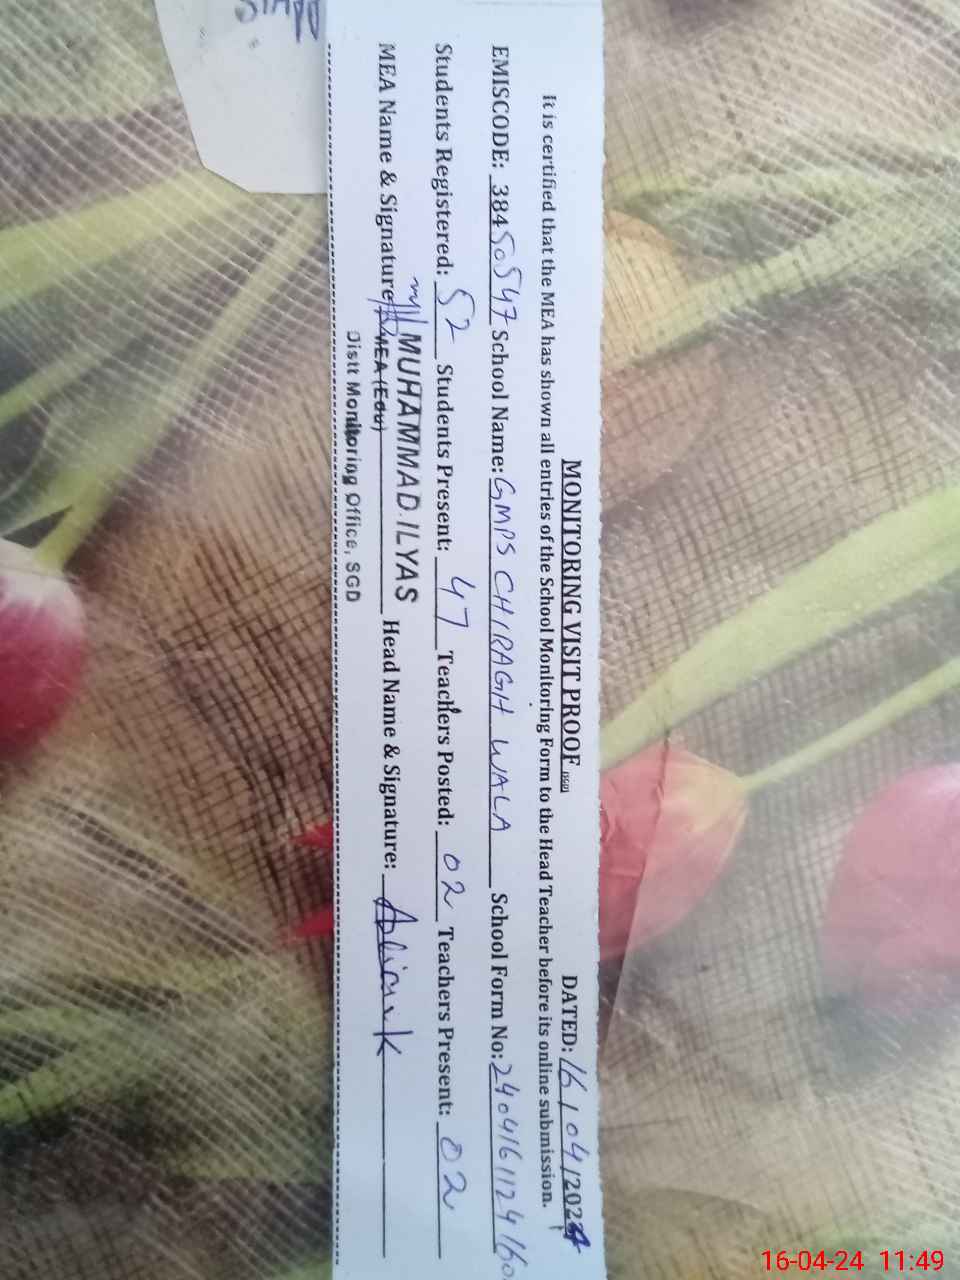 MONITORING VISIT PROOF (SGD) DATED: 16/04/2024
It is certified that the MEA has shown all entries of the School Monitoring Form to the Head Teacher before its online submission.
EMISCODE: 38450547 School Name: GMPS CHIRAGH WALA School Form No: 2404161124160
Students Registered: 52 Students Present: 47 Teachers Posted: 02 Teachers Present: 02
MUHAMMAD ILYAS
MEA Name & Signature MEA (Edu) Head Name & Signature:
Distt Monitoring Office, SGD
16-04-24 11:49